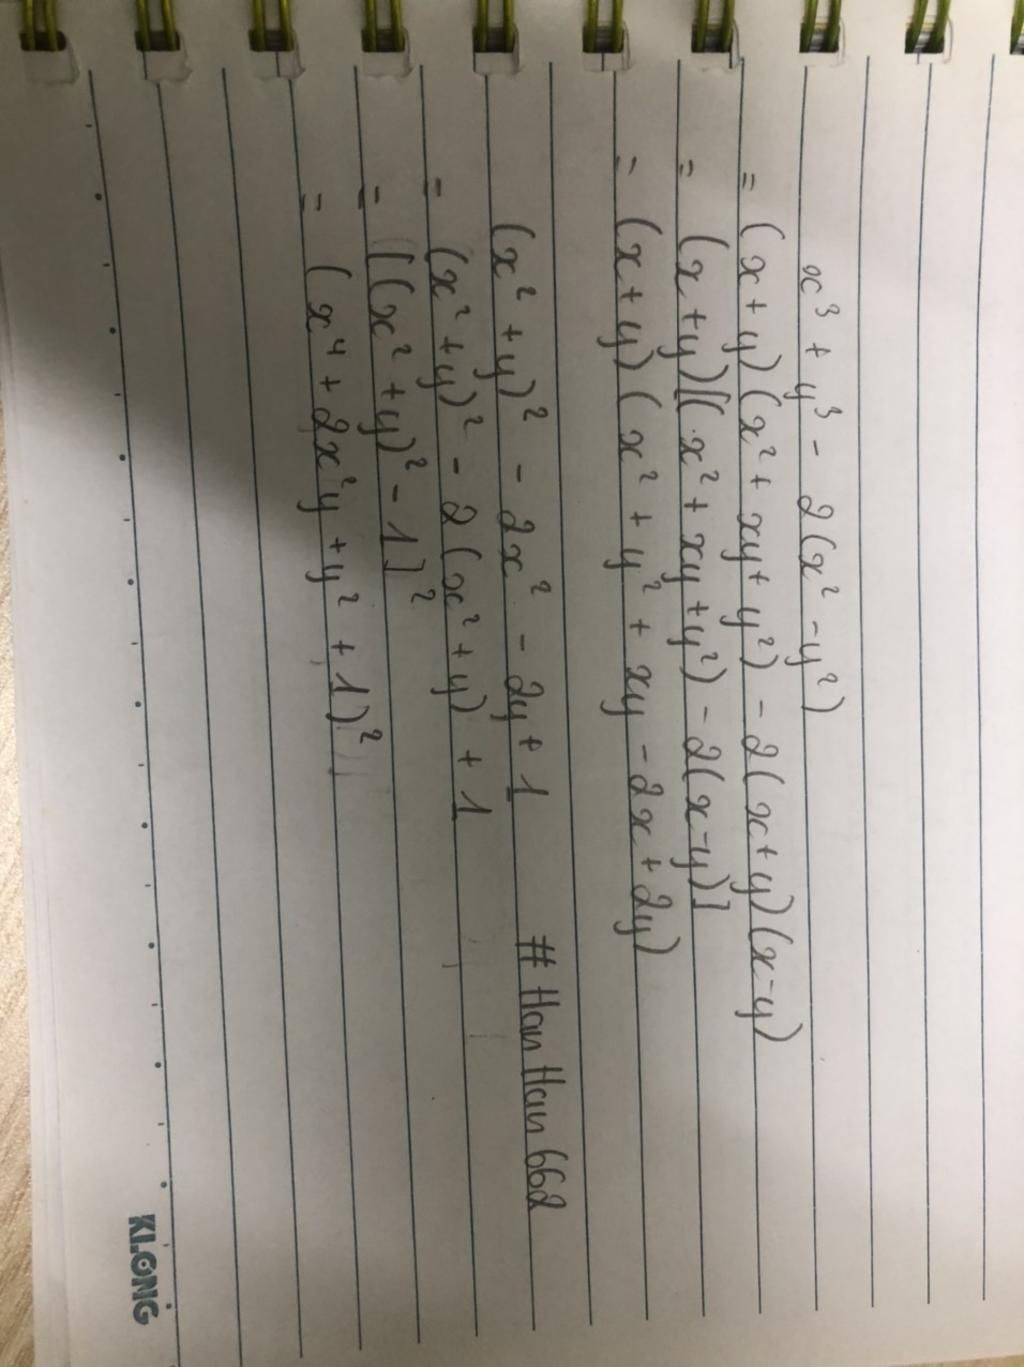 x³ + y³ - 2(x² - y²)
= (x + y)(x² + xy + y²) - 2(x + y)(x - y)
= (x + y)[(x² + xy + y²) - 2(x - y)]
= (x + y)(x² + y² + xy - 2x + 2y)
(x² + y)² - 2x² - 2y + 1 # Han Han 662
= (x² + y)² - 2(x² + y) + 1
= [(x² + y)² - 1]²
= (x⁴ + 2x²y + y² + 1)²
KLONG